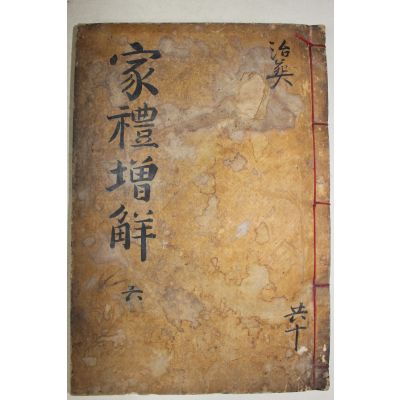 治葬
家禮增解
六
共十